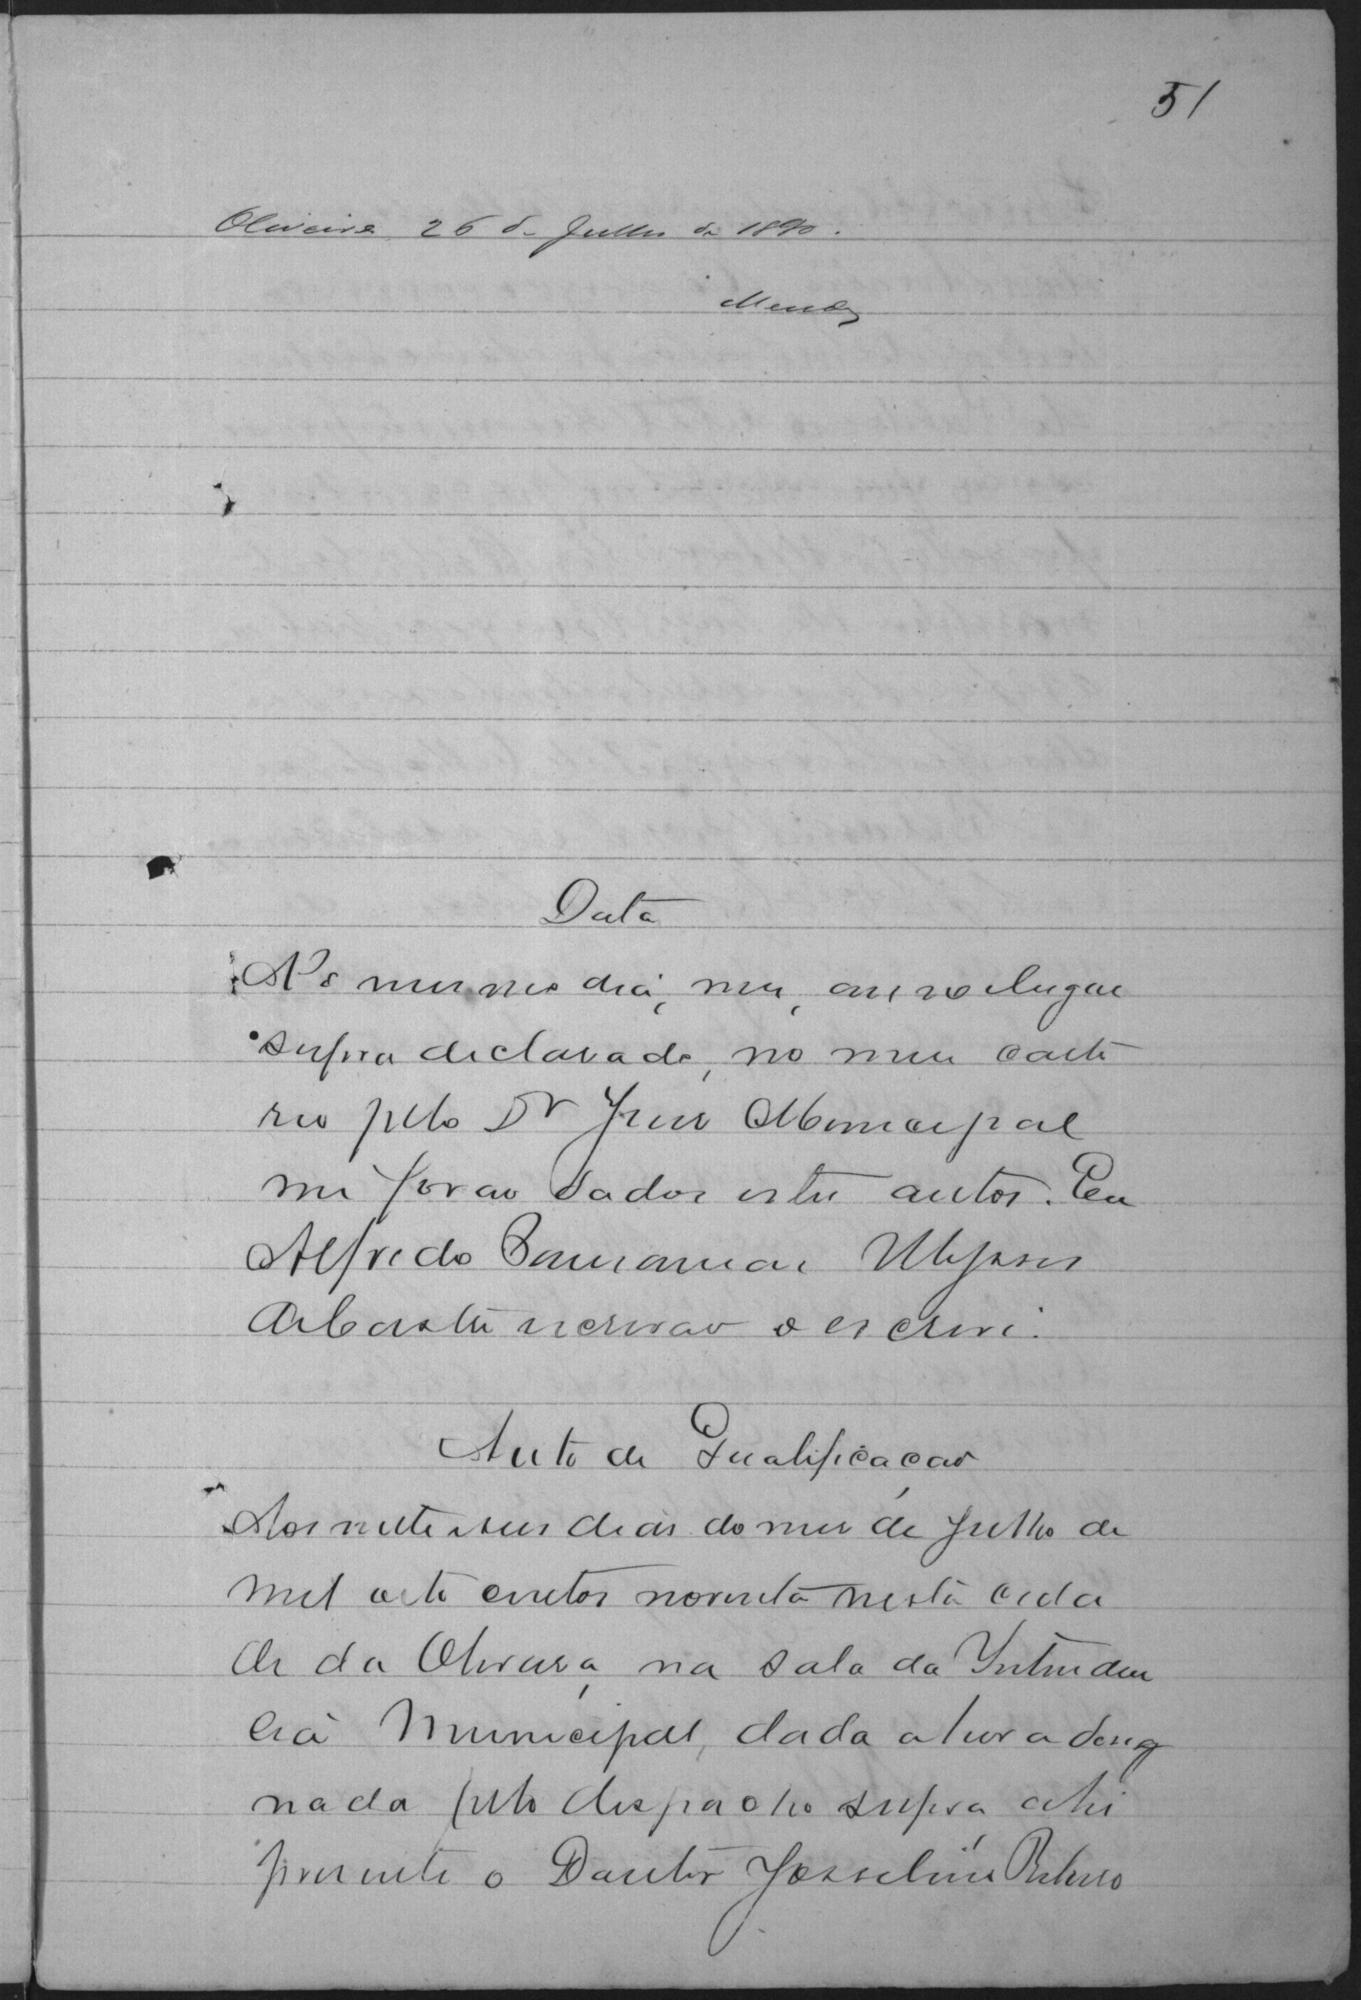 51
Oliveira 26 de Julho de 1890.
Mendes
Data
No mesmo dia, mez, anno e lugar
supra declarado, no meu carto
rio pelo Dr Juiz Municipal
me forão dados estes autos. Eu
Alfredo Ulysses
escrivão o escrevi.
Auto de Qualificação
Aos vinte e seis dias do mez de Julho de
mil oito centos noventa nesta cida
de da Oliveira, na sala da Intenden
cia Municipal, dada a hora desig
nada pelo despacho supra, ahi
presente o Doutor Josselino